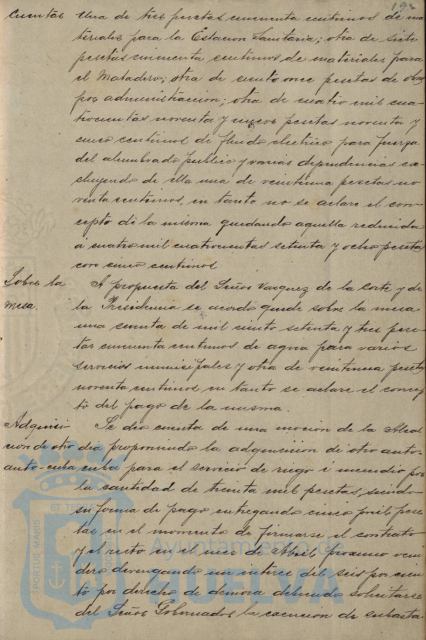 Cuentas Otra de tres pesetas cincuenta centimos de ma
teriales para la Estacion Sanitaria; otra de siete
pesetas cincuenta centimos de materiales para
el Matadero; otra de ciento once pesetas de obras
por administracion; otra de cuatro mil cua
trocientas noventa y nueve pesetas noventa y
cinco centimos de fluido electrico para fuerza
del alumbrado publico y varias dependencias ex
cluyendo de ella una de veintiuna pesetas no
venta centimos, en tanto no se aclare el con
cepto de la misma quedando aquella reducida
a cuatro mil cuatrocientas setenta y ocho pesetas
con cinco centimos
Sobre la A propuesta del Señor Vazquez de la Corte y de
mesa. la Presidencia se acordó quede sobre la mesa
una cuenta de mil ciento setenta y tres pese
tas cincuenta centimos de agua para varios
servicios municipales y otra de veintiuna pesetas
noventa centimos en tanto se aclare el concep
to del pago de la misma.
Adquisi Se dio cuenta de una mocion de la Alcal
ción de otro dia proponiendo la adquisicion de otro auto
auto-cuba cuba para el servicio de riego é incendio por
la cantidad de treinta mil pesetas siendo
su forma de pago entregando cinco mil pese
tas en el momento de firmarse el contrato
y el resto en el mes de Abril proximo veni
dero devengando un interes del seis por cien
to por derecho de demora debiendo solicitarse
del Señor Gobernador la excencion de subasta
PORTUS MARIS
Ayuntamiento de
HUELVA